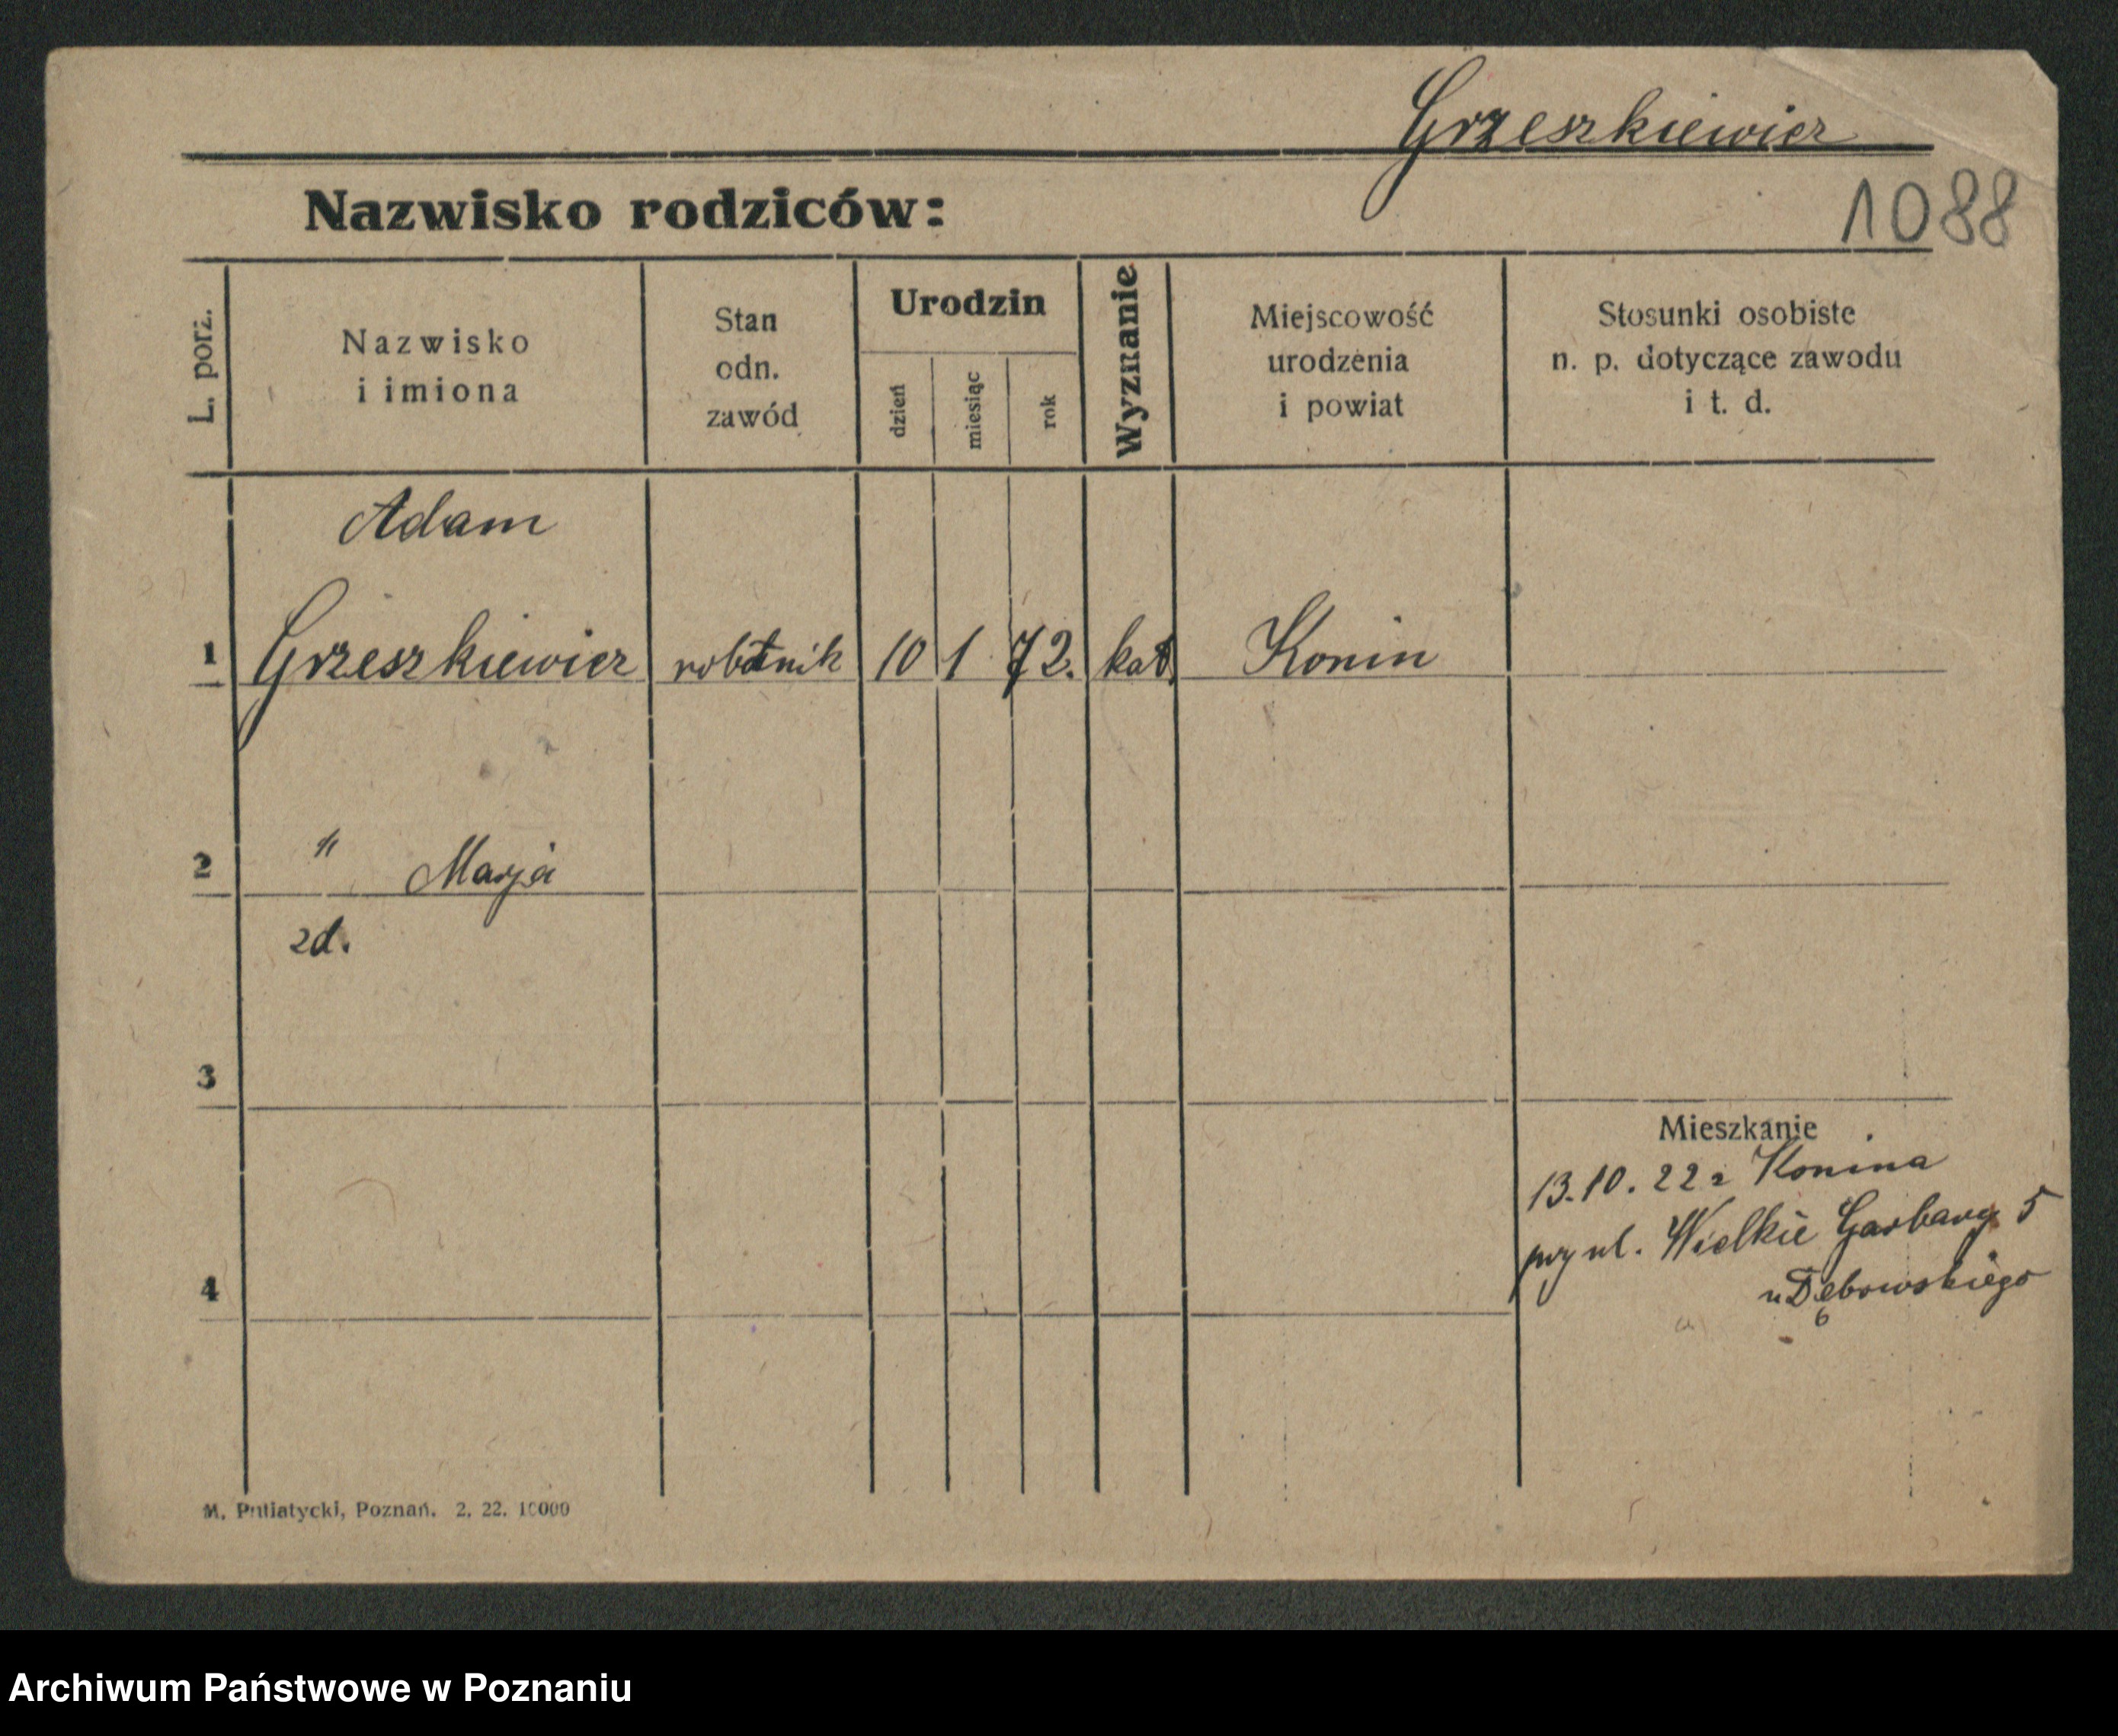 Grzeszkiewicz
Nazwisko rodziców:
1088
L. porz.
Nazwisko
i imiona
Stan
odn.
zawód
Urodzin
dzień
miesiąc
rok
Wyznanie
Miejscowość
urodzenia
i powiat
Stosunki osobiste
n. p. dotyczące zawodu
i t. d.
Adam
1 Grzeszkiewicz robotnik 10 1 72. kat. Konin
2 " Marja
zd.
3
Mieszkanie
13.10.22 z Konina
przy ul. Wielkie Garbary 5
u Dębowskiego
4
M. Putiatycki, Poznań. 2. 22. 10000
Archiwum Państwowe w Poznaniu